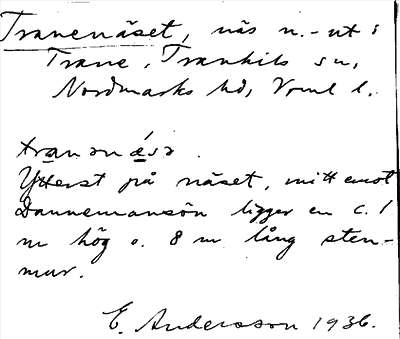 Tranenäset, näs n.-ut i
Trane, Trankils sn,
Nordmarks hd, Vrml l.
tranənǽsə.
Ytterst på näset, mitt emot
Dannemansön ligger en c. 1
m hög o. 8 m lång sten-
mur.
E. Andersson 1936.